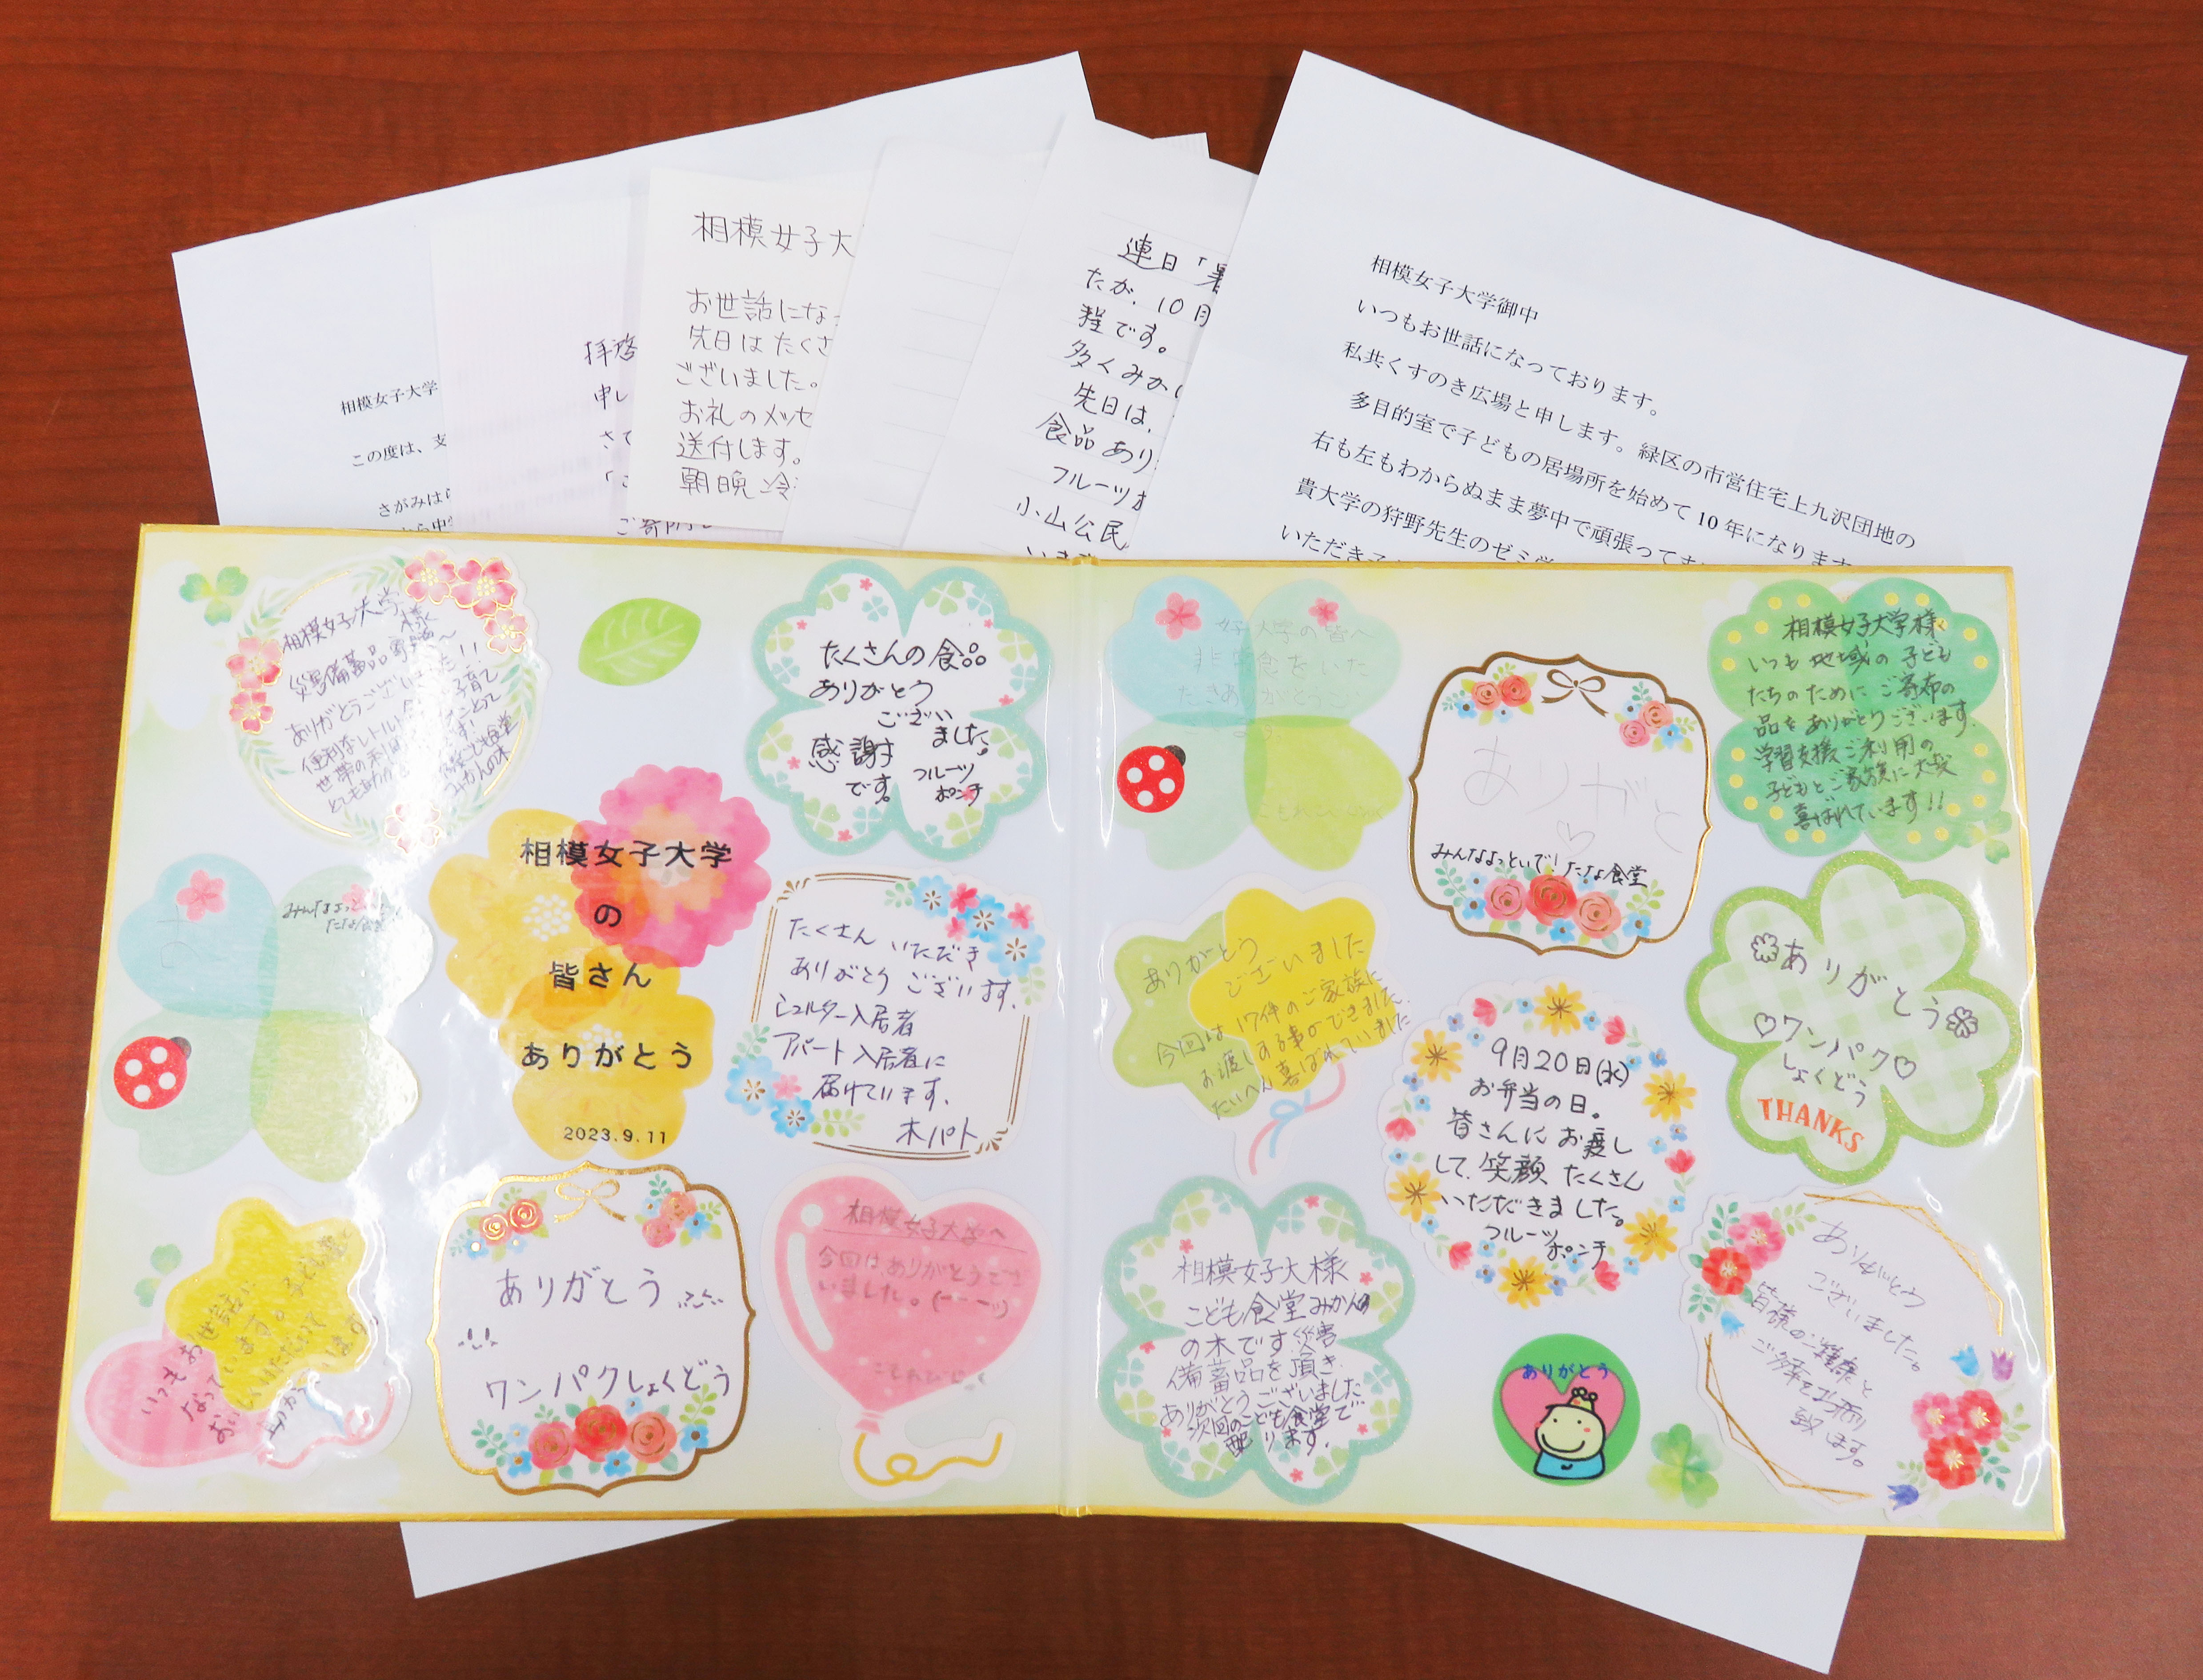 相模女子大学
この度は、支
さがみは
拝啓
申し
さて
相模女子大
お世話にな
先日はたくさ
ございました。
お礼のメッセ
送付します。
朝晩冷
連日「暑
たが、10月
程です。
多くみか
先日は、
食品あり
フルーツポ
小山公民
相模女子大学御中
いつもお世話になっております。
私共くすのき広場と申します。緑区の市営住宅上九沢団地の
多目的室で子どもの居場所を始めて10年になります
右も左もわからぬまま夢中で頑張ってま
貴大学の狩野先生のゼミ学
いただき子
相模女子大学様
災害備蓄品寄
ありがとうございました!!
便利なレトルト
子育て
世帯の利
みかんの木
たくさんの食品
ありがとう
ござい
ました。
感謝
です。
フルーツ
ポンチ
相模女子大学
の
皆さん
ありがとう
2023.9.11
たくさん いただき
ありがとう ございます。
シェルター入居者
アパート入居者に
届けています。
木パト
いつもお世話に
なっています。
ありがとう
ワンパクしょくどう
相模女子大学へ
今回はありがとうござ
いました。
女子大学の皆へ
非常食をいた
ありがと
みんなよっといで!たな食堂
相模女子大学様
いつも地域の子ども
たちのために ご寄布の
品をありがとうございます。
学習支援ご利用の
子どもとご家族に大変
喜ばれています!!
ありがとう
ございました
今回は17件のご家族に
お渡しする事ができました。
たいへん喜ばれていました
9月20日(水)
お弁当の日。
皆さんにお渡し
して、笑顔 たくさん
いただきました。
フルーツ
ポンチ
ありがとう
ワンパク
しょくどう
THANKS
相模女子大様
こども食堂みかん
の木です。災害
備蓄品を頂き
ありがとうございました
次回のこども食堂で
配ります。
ありがとう
ありがとう
ございました。
皆様のご健康と
ご多幸をお祈り
致します。